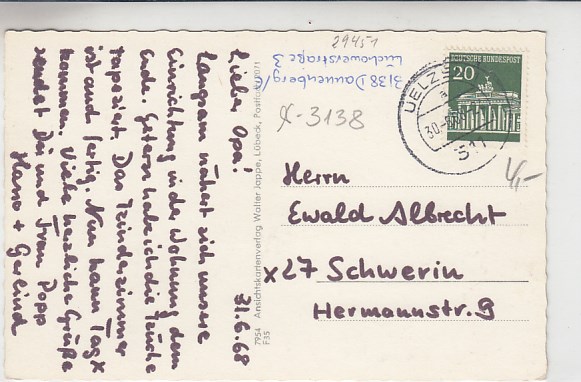 Liebe Opa!
31.6.68
langsam nähert sich unsere
Einrichtung in der Wohnung dem
Ende. Gestern habe ich die Küche
tapeziert. Das Kinderzimmer
ist auch fertig. Nun kann Tag X
kommen. Viele herzliche Grüße
sendet Dir und Frau Popp
Hans + Gerlind
3138 Dannenberg/E
Lüchowerstraße 3
29451
X-3138
7954 Ansichtskartenverlag Walter Jappe, Lübeck, Postfach 2071
F35
DEUTSCHE BUNDESPOST
20
UELZEN
a
30.
311
4,-
Herrn
Ewald Albrecht
X27 Schwerin
Hermannstr. 9